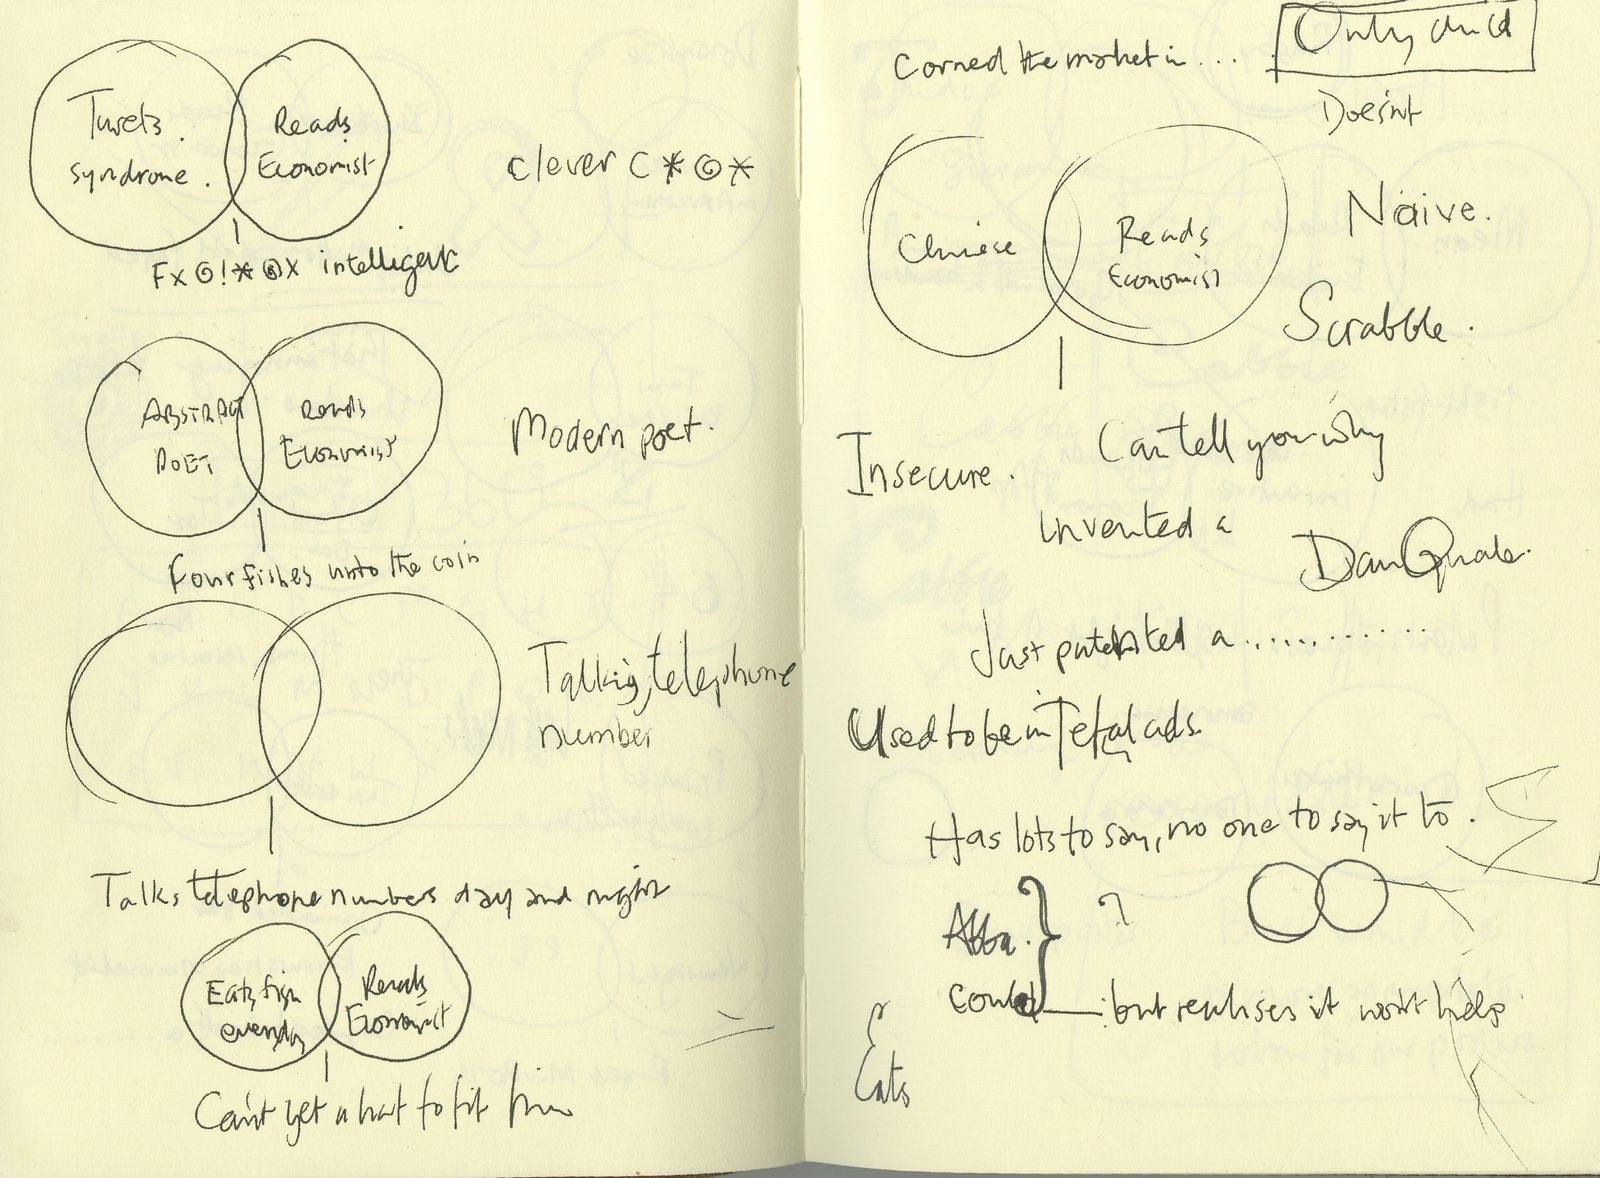 Turets
syndrome.
Reads
Economist
Clever C*@*
Fx@!*@x intelligent
ABSTRACT
POET
Reads
Economist
Modern poet.
Four fishes unto the coin
Talking telephone
number
Talks telephone numbers day and night
Eats fish
everyday
Reads
Economist
Can't get a hat to fit him
Corned the market in ....
Only child
Doesn't
Chinese
Reads
Economist
Naive.
Scrabble.
Insecure.
Can tell you why
invented a
Dan Quale.
Just patented a ............
Used to be in Tefal ads.
Has lots to say, no one to say it to.
Abba.
?
Could
: but realises it won't help
Eats